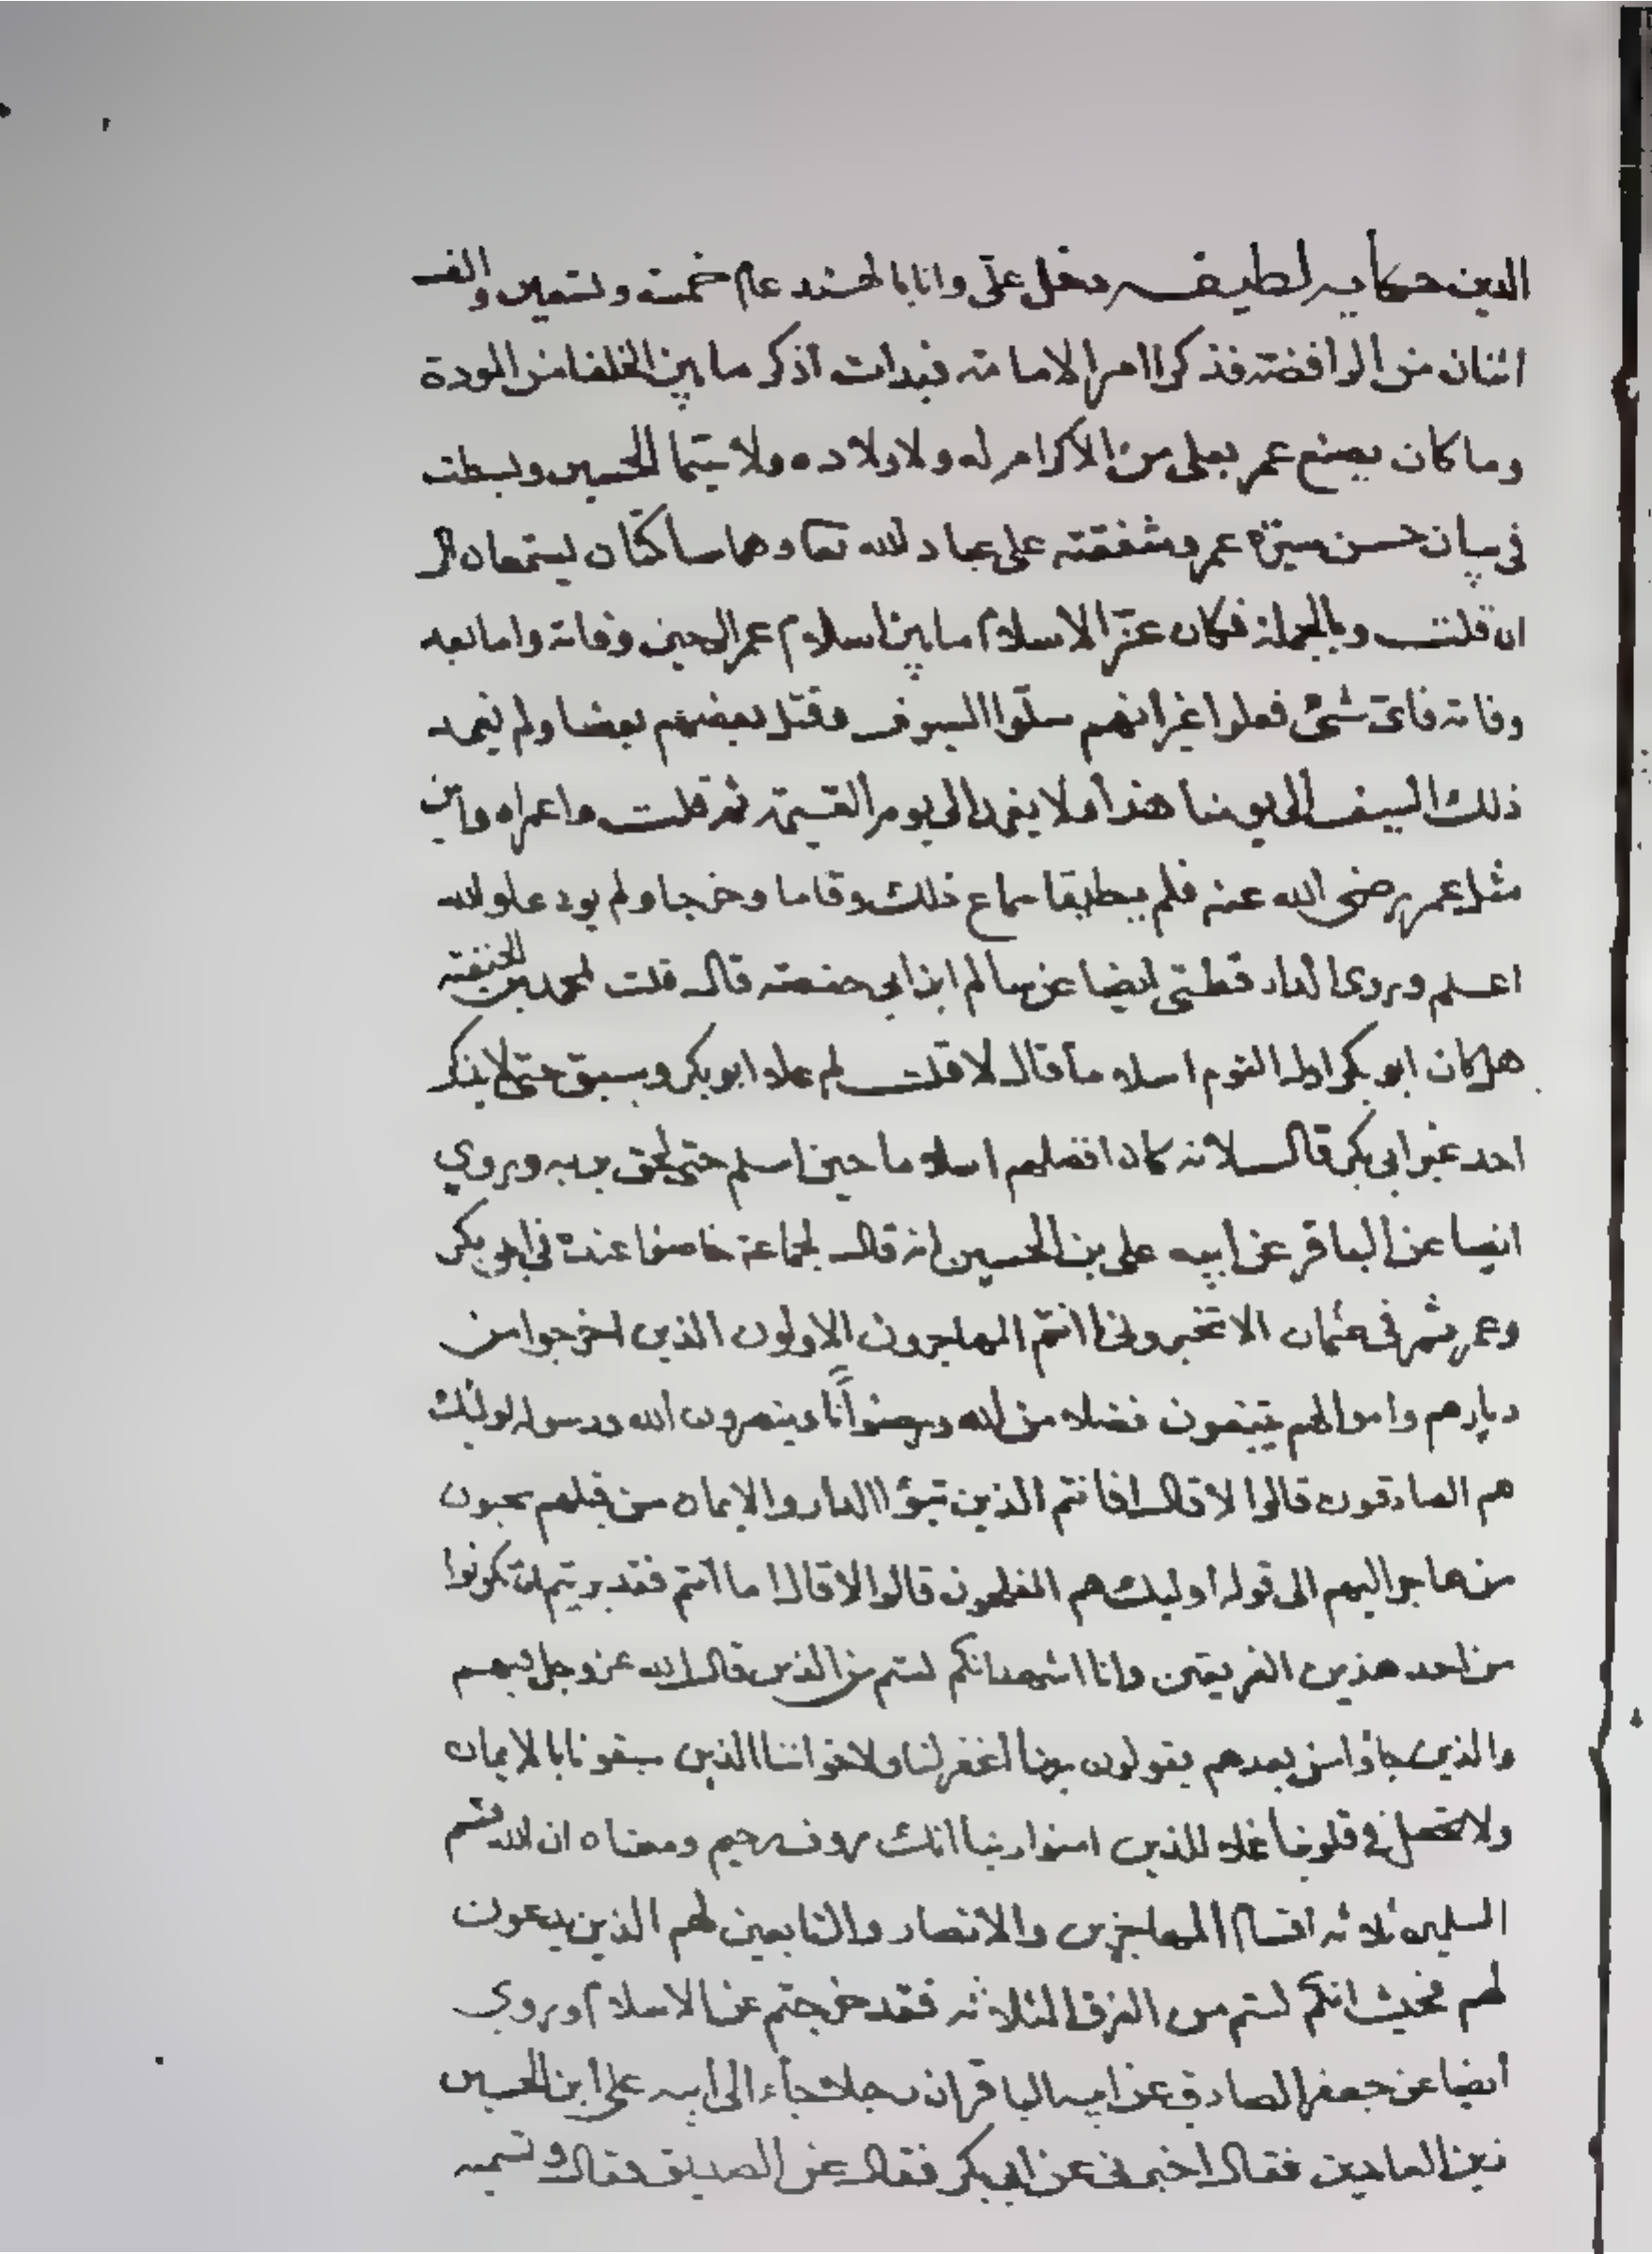 الدين حكايه لطيفه دخل علي وانا بالهند عام خمسة وتسعين والف
اثنان من الرافضة فذكرا امر الامامة فبدات اذكر ما بين الخلفا من المودة
وما كان يصنع عمر بعلى من الاكرام له ولاولاده ولا سيما الحسين وبسطت
في بيان حسن سيرة عمر وشفقته على عباد الله تعا وهما ساكتان يستمعان الى
ان قلت وبالجملة فكان عز الاسلام ما بين اسلام عمر الى حين وفاته واما بعد
وفاته فاى شئ فعلوا غير انهم سلوا السيوف وقتل بعضهم بعضا ولم يغمد
ذلك السيف الى يومنا هذا ولا يغمد الى يوم القيمة ثم قلت واعمراه واين
مثل عمر رضى الله عنه فلم يطيقا سماع ذلك وقاما وخرجا ولم يودعا والله
اعلم وروى الدار قطني ايضا عن سالم ابن ابي حفصة قال قلت لمحمد بن الحنفية
هل كان ابو بكر اول القوم اسلاما قال لا قلت لم علا ابو بكر وسبق حتى لا يذكر
احد غير ابي بكر قال لانه كان افضلهم اسلاما حين اسلم حتى لحق بربه وروي
ايضا عن الباقر عن ابيه على بن الحسين انه قال لجماعة خاضوا عنده في ابي بكر
وعمر ثم في عثمان الا تخبروني اانتم المهاجرون الاولون الذين اخرجوا من
ديارهم واموالهم يبتغون فضلا من الله ورضوانا وينصرون الله ورسوله اولئك
هم الصادقون قالوا لا قال افانتم الذين تبوؤا الدار والايمان من قبلهم يحبون
من هاجر اليهم الى قوله اوليك هم المفلحون قالوا لا قال اما انتم فقد بريتم ان تكونوا
من احد هذين الفريقين وانا اشهد انكم لستم من الذين قال الله عز وجل فيهم
والذين جاؤا من بعدهم يقولون ربنا اغفر لنا ولاخواننا الذين سبقونا بالايمان
ولا تجعل في قلوبنا غلا للذين امنوا ربنا انك روف رحيم ومعناه ان الله قسم
المسلمين ثلاثه اقسام المهاجرين والانصار والتابعين لهم الذين يدعون
لهم فحيث انكم لستم من الفرق الثلاثه فقد خرجتم عن الاسلام وروي
ايضا عن جعفر الصادق عن ابيه الباقر ان رجلا جاء الى ابيه على ابن الحسين
زين العابدين فقال اخبرني عن ابي بكر فقال عن الصديق فقال وتسميه